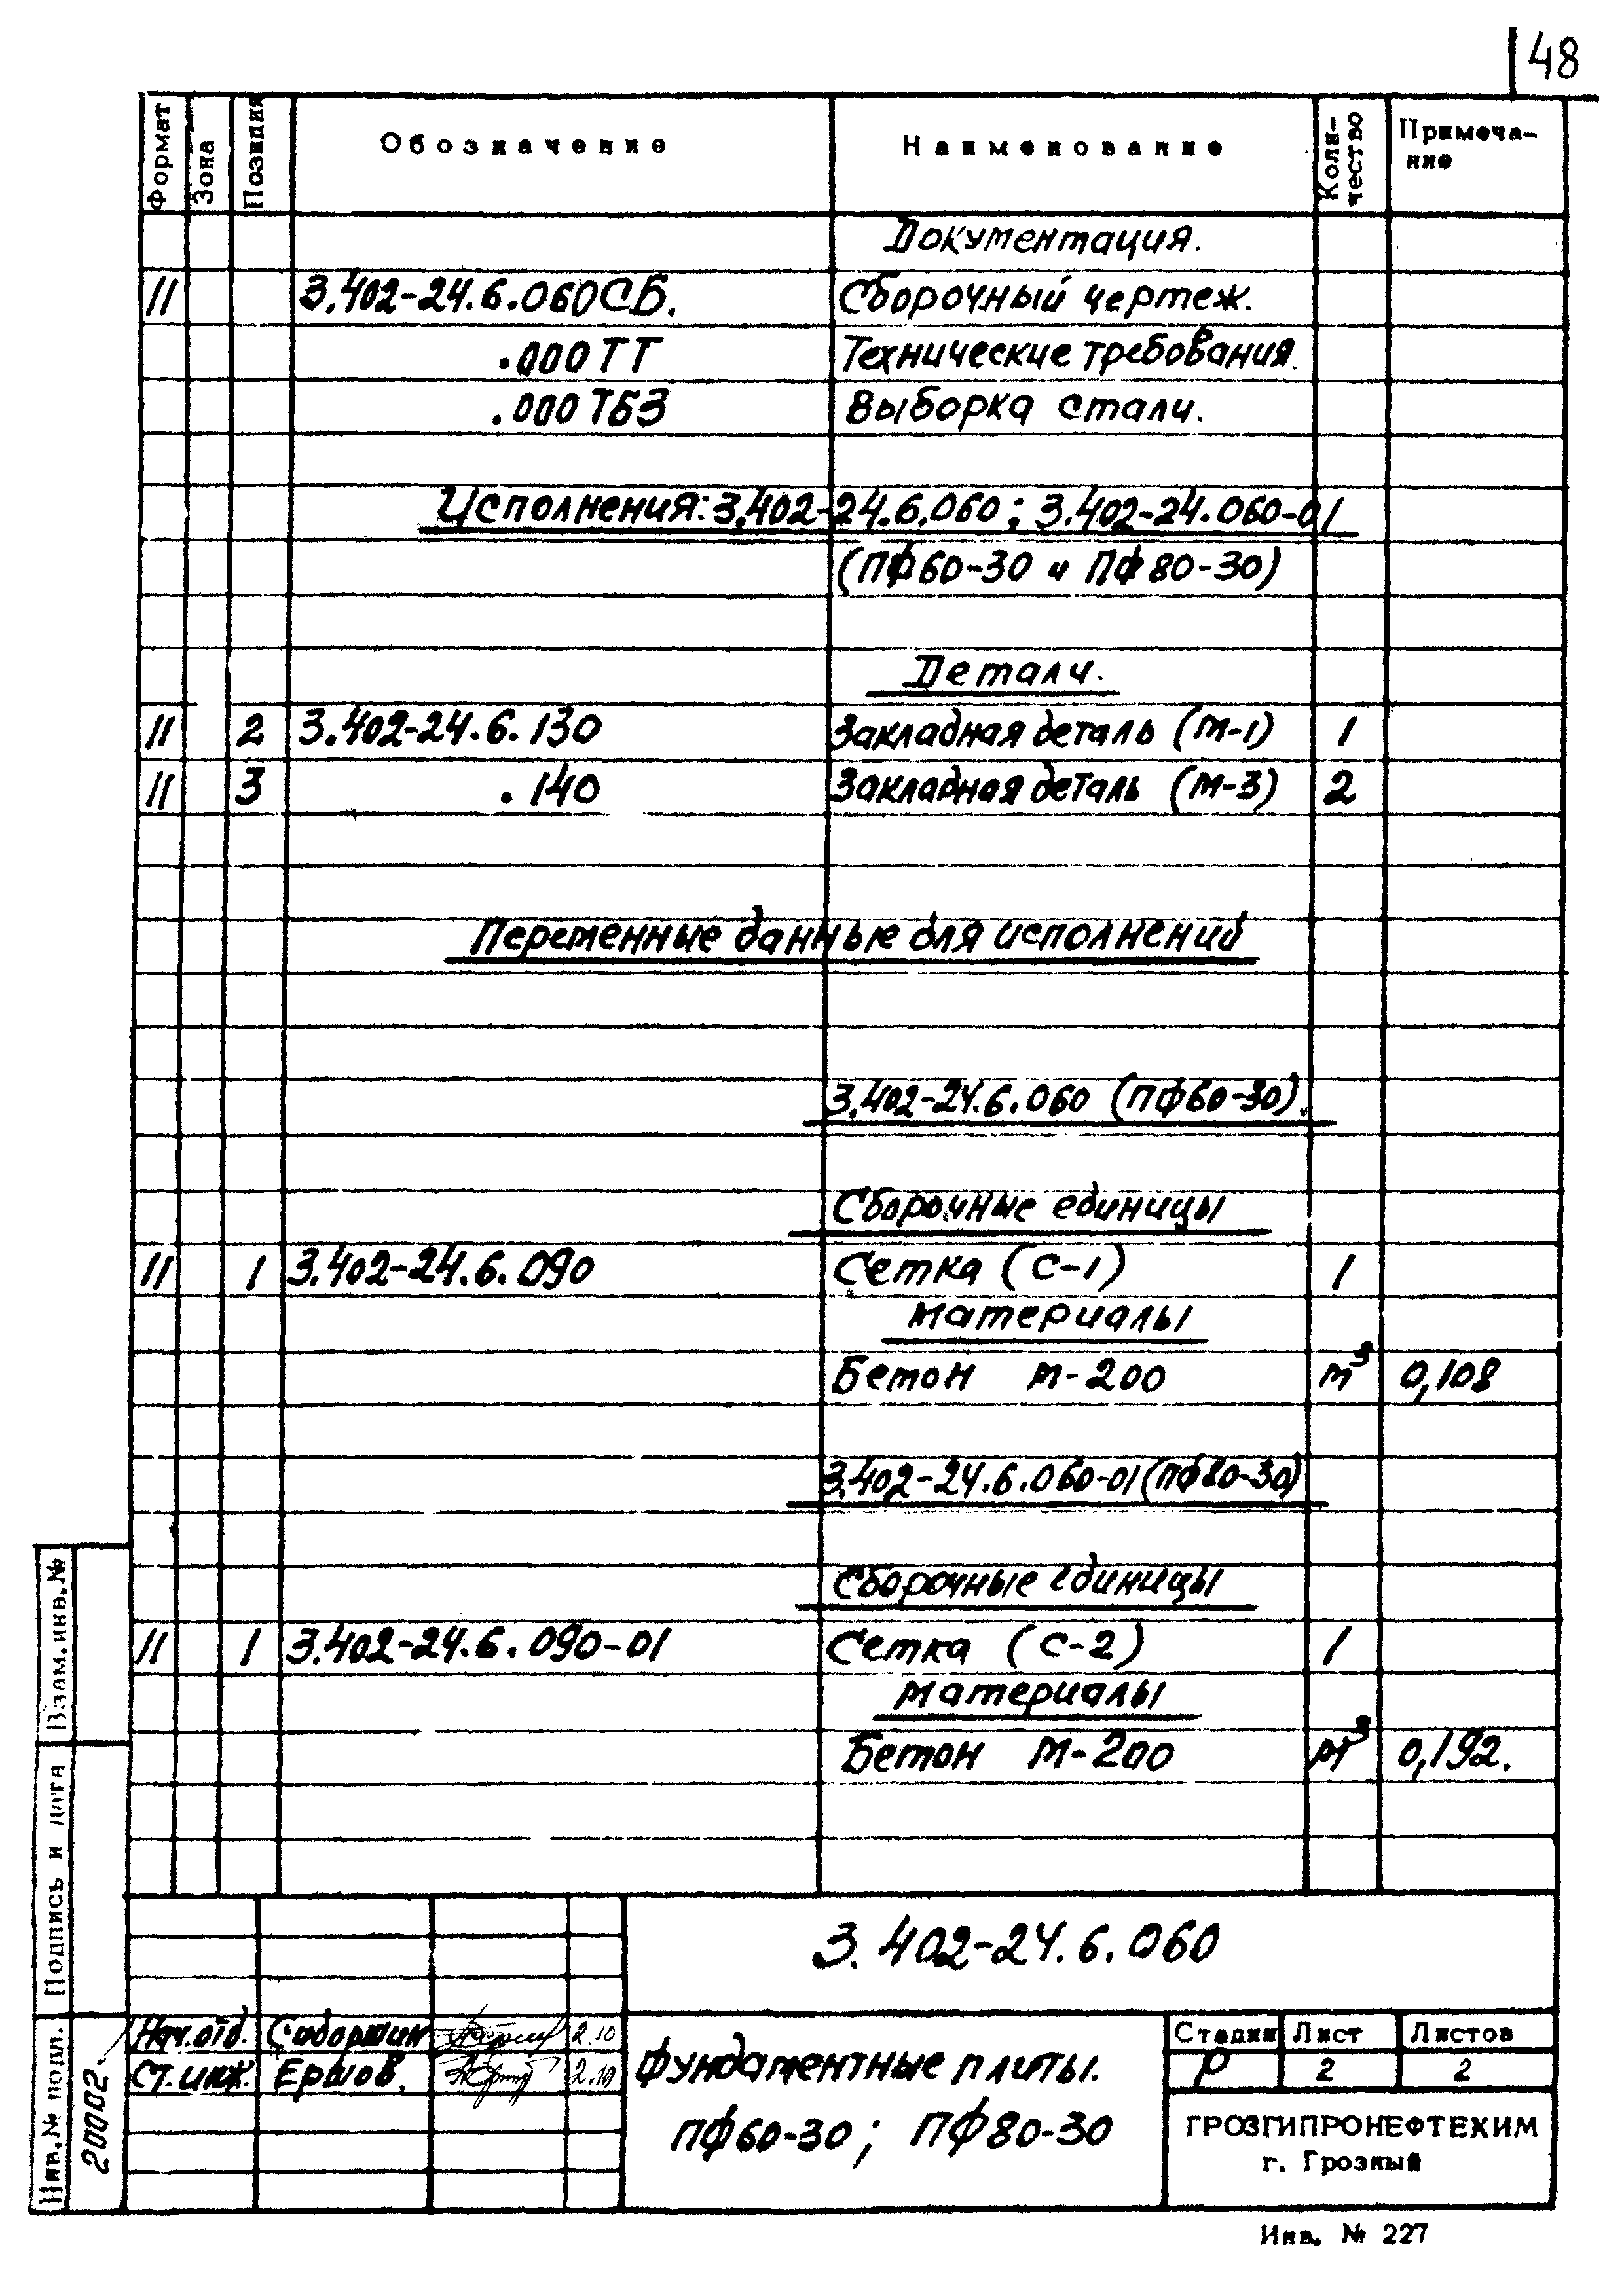 48
Формат Зона Позиция Обозначение Наименование Коли-чество Примеча-ние
Документация.
11 3.402-24.6.060СБ. Сборочный чертеж.
.000ТТ Технические требования.
.000ТБЗ Выборка стали.
Исполнения: 3.402-24.6.060; 3.402-24.060-01
(ПФ60-30 и ПФ80-30)
Детали.
11 2 3.402-24.6.130 Закладная деталь (М-1) 1
11 3 .140 Закладная деталь (М-3) 2
Переменные данные для исполнений
3.402-24.6.060 (ПФ60-30).
Сборочные единицы
11 1 3.402-24.6.090 Сетка (С-1) 1
Материалы
Бетон М-200 м³ 0,108
3.402-24.6.060-01 (ПФ80-30)
Сборочные единицы
11 1 3.402-24.6.090-01 Сетка (С-2) 1
Материалы
Бетон М-200 м³ 0,192.
Взам.инв.№
Подпись и дата
Инв.№ подл.
20002.
3.402-24.6.060
Нач.отд. 2.10
Ст.инж. Ершов. 2.10
Фундаментные плиты.
ПФ60-30; ПФ80-30
Стадия Лист Листов
Р 2 2
ГРОЗГИПРОНЕФТЕХИМ
г. Грозный
Инв. № 227